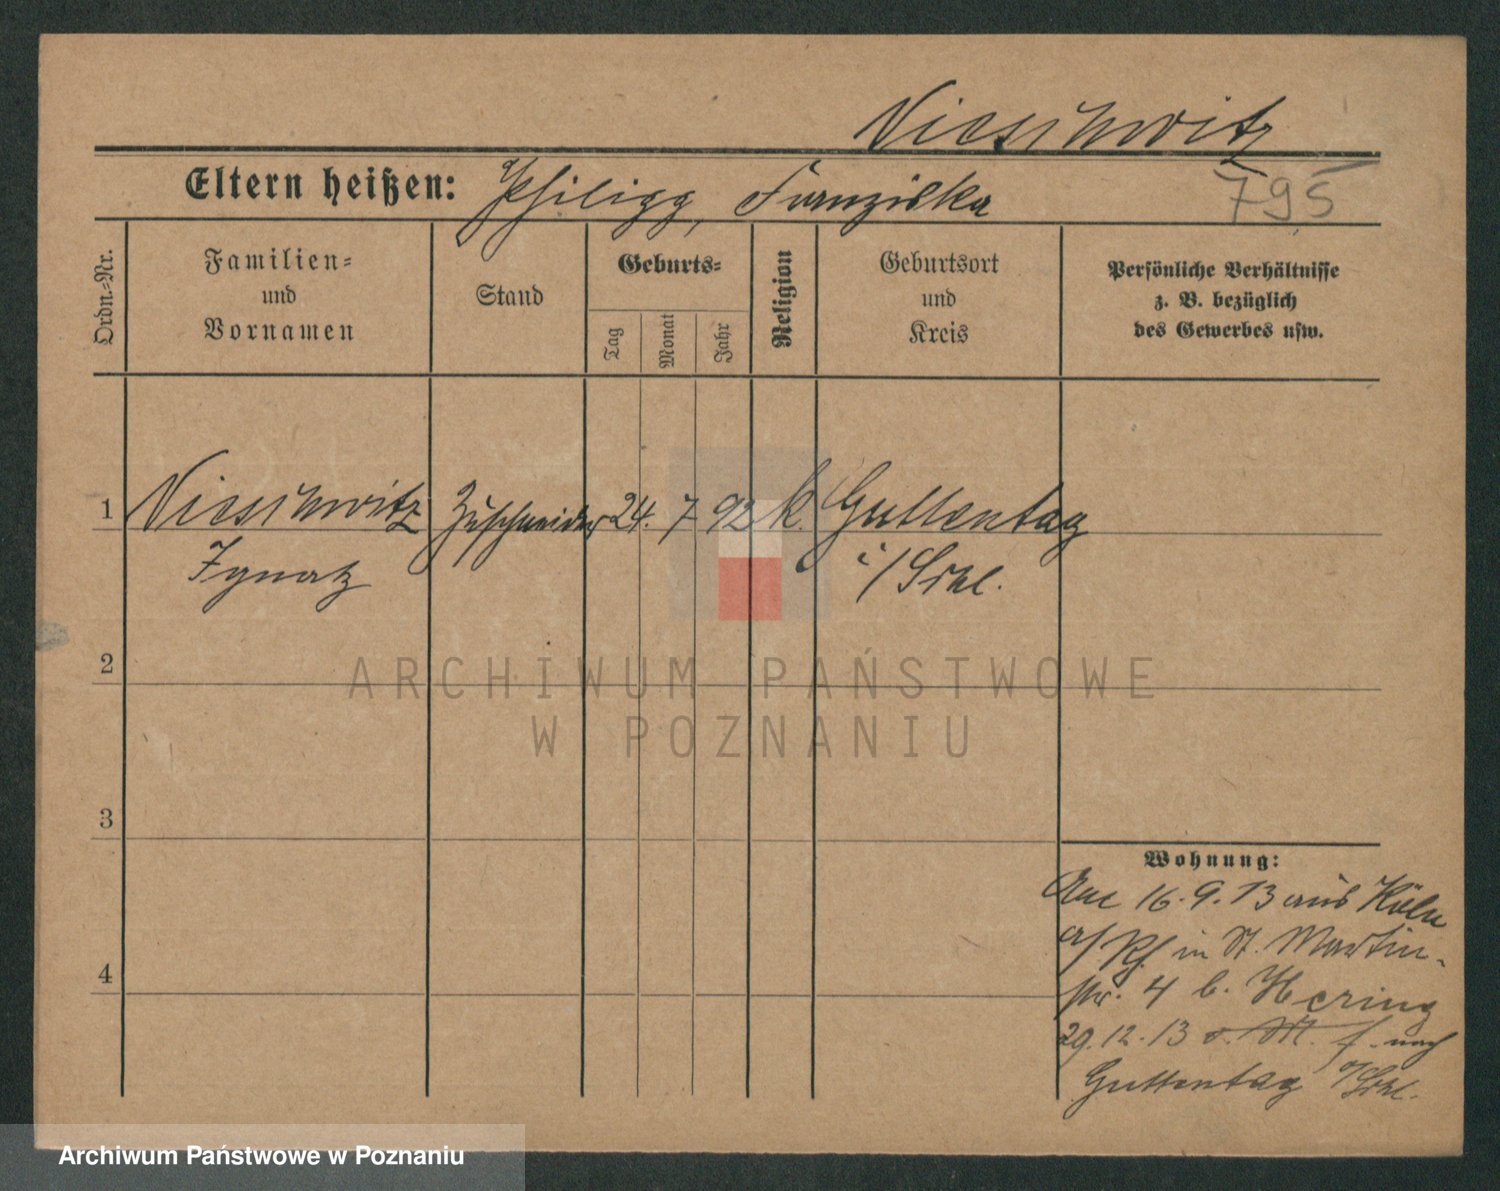 Niesschwitz
Eltern heißen: Philipp, Franziska
795
Ordn.-Nr.
Familien-
und
Vornamen
Stand
Geburts-
Tag
Monat
Jahr
Religion
Geburtsort
und
Kreis
Persönliche Verhältnisse
z. B. bezüglich
des Gewerbes usw.
1 Niesschwitz Zuschneider 24. 7 92 k. Guttentag
Ignatz i/Schl.
2
ARCHIWUM PAŃSTWOWE
W POZNANIU
3
4
Wohnung:
Am 16.9.13 aus Köln
a/Rh. in St. Martin-
str. 4 b. Hering
29.12.13 nach
Guttentag /Schl.
Archiwum Państwowe w Poznaniu